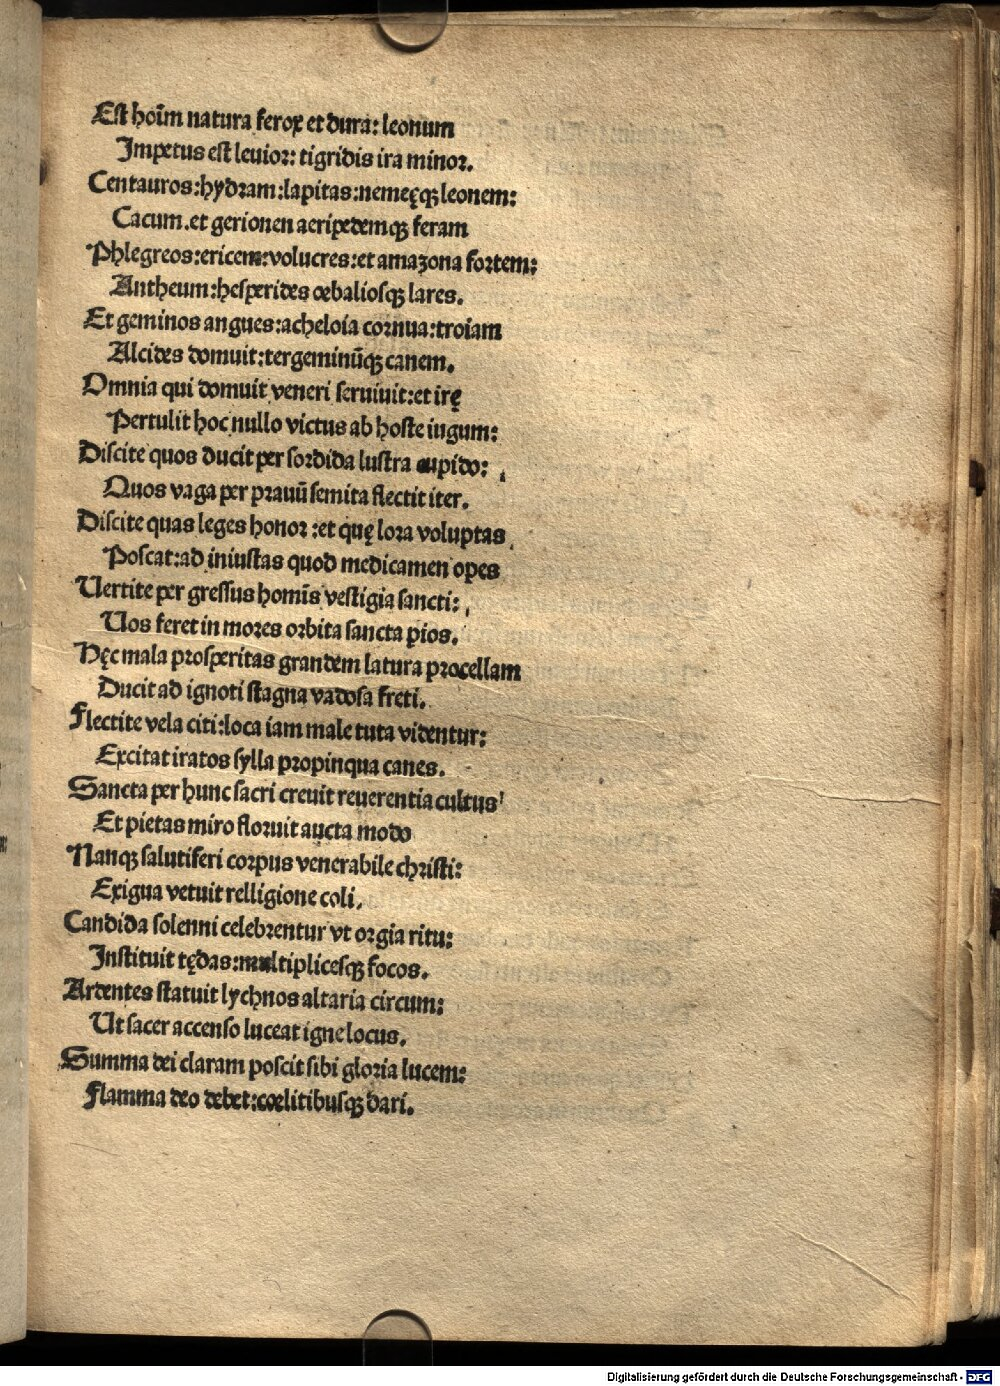 Est hoīm natura ferox et dura: leonum
Impetus est leuior: tigridis ira minor.
Centauros: hydram: lapitas: nemeęqꝫ leonem:
Cacum. et gerionen aeripedemqꝫ feram
Phlegreos: ericem: volucres: et amazona fortem:
Antheum: hesperides oebaliosqꝫ lares.
Et geminos angues: acheloia cornua: troiam
Alcides domuit: tergeminūqꝫ canem.
Omnia qui domuit veneri seruiuit: et irę
Pertulit hoc nullo victus ab hoste iugum:
Discite quos ducit per sordida lustra cupido:
Quos vaga per prauū semita flectit iter.
Discite quas leges honor: et quę lora voluptas
Poscat: ad iniustas quod medicamen opes
Uertite per gressus homīs vestigia sancti:
Uos feret in mores orbita sancta pios.
Hęc mala prosperitas grandem latura procellam
Ducit ad ignoti stagna vadosa freti.
Flectite vela citi: loca iam male tuta videntur:
Excitat iratos sylla propinqua canes.
Sancta per hunc sacri creuit reuerentia cultus
Et pietas miro floruit aucta modo
Nanqꝫ salutiferi corpus venerabile christi:
Exigua vetuit relligione coli.
Candida solenni celebrentur vt orgia ritu:
Instituit tędas: multiplicesqꝫ focos.
Ardentes statuit lychnos altaria circum:
Ut sacer accenso luceat igne locus.
Summa dei claram poscit sibi gloria lucem:
Flamma deo debet: coelitibusqꝫ dari.
Digitalisierung gefördert durch die Deutsche Forschungsgemeinschaft - DFG